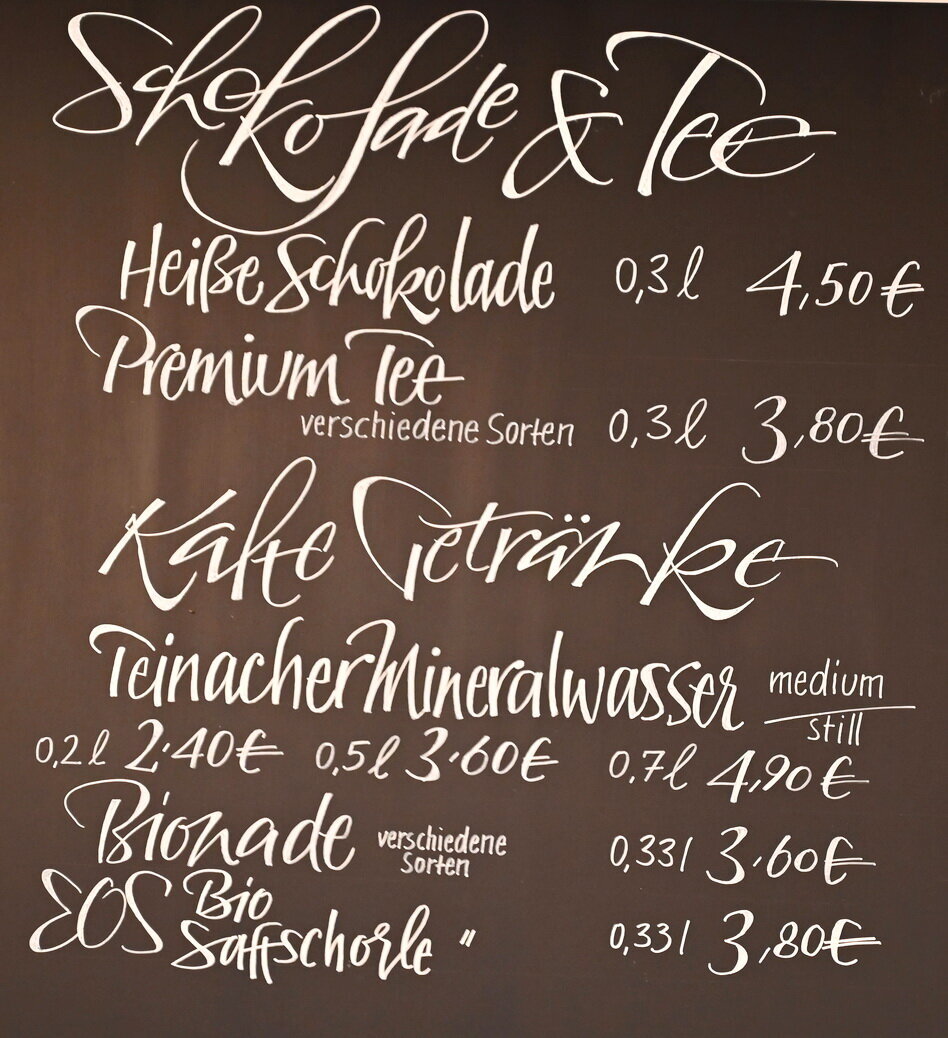 Schokolade & Tee
Heiße Schokolade 0,3 l 4,50 €
Premium Tee
verschiedene Sorten 0,3 l 3,80 €
Kalte Getränke
Teinacher Mineralwasser medium
still
0,2 l 2.40 € 0,5 l 3.60 € 0,7 l 4,90 €
Bionade verschiedene
Sorten 0,33 l 3.60 €
EOS Bio
Saftschorle " 0,33 l 3,80 €